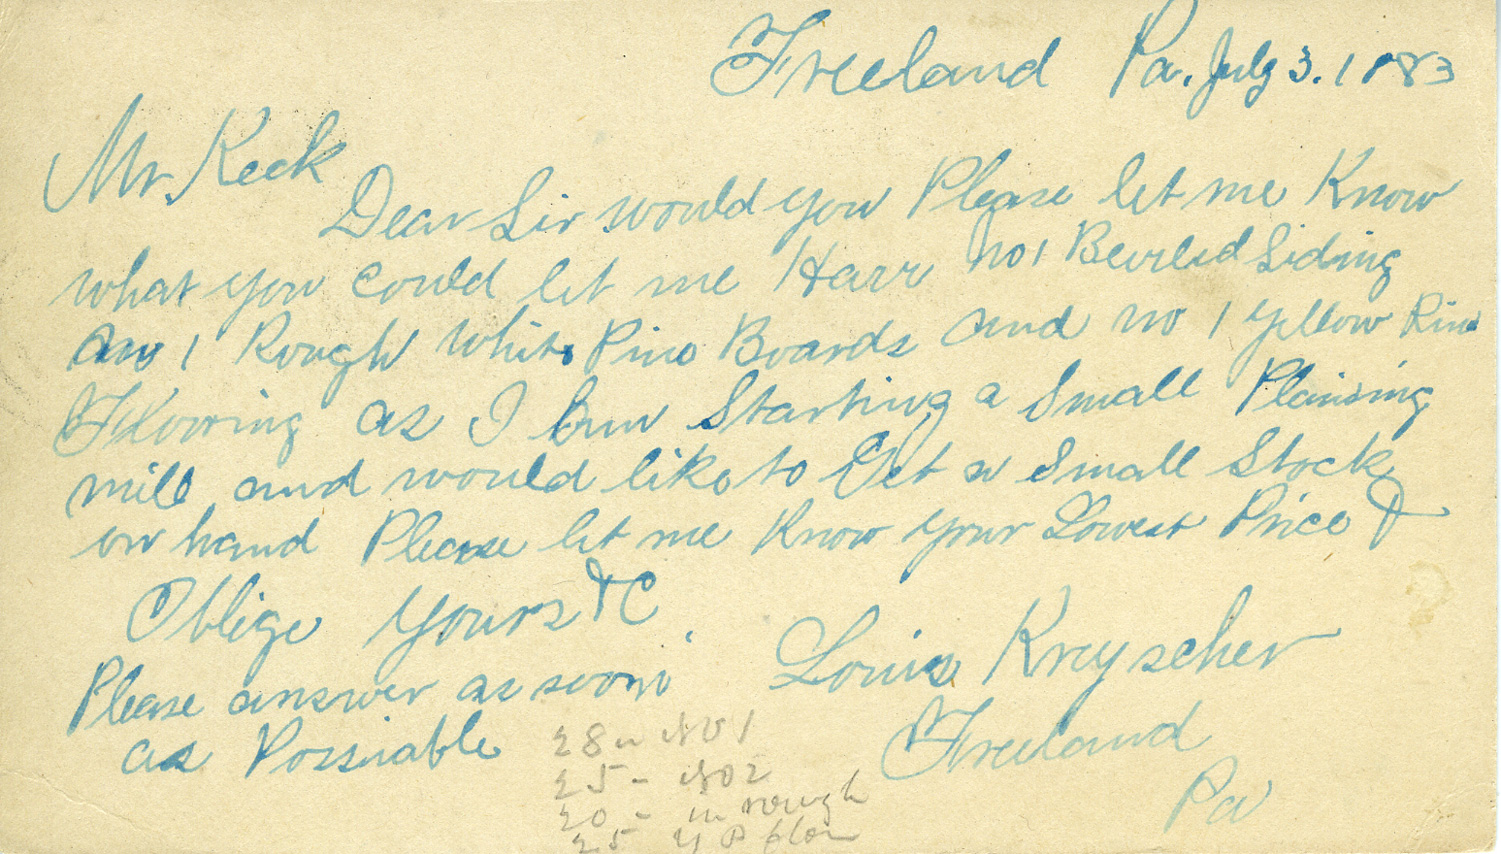 Freeland Pa. July 3. 1883
Mr. Keck
Dear Sir would you Please let me Know
what you could let me Have No 1 Beveled Siding
no 1 Rough White Pine Boards and no 1 Yellow Pine
Flooring as I am Starting a Small Plaining
mill and would like to Get a Small Stock
on hand Please let me Know your Lowest Price &
Oblige Yours &C
Please answer as soon
as Possiable
Louis Kreyscher
Freeland
Pa
28 - No 1
25 - No 2
20 - in rough
25 Y P floor